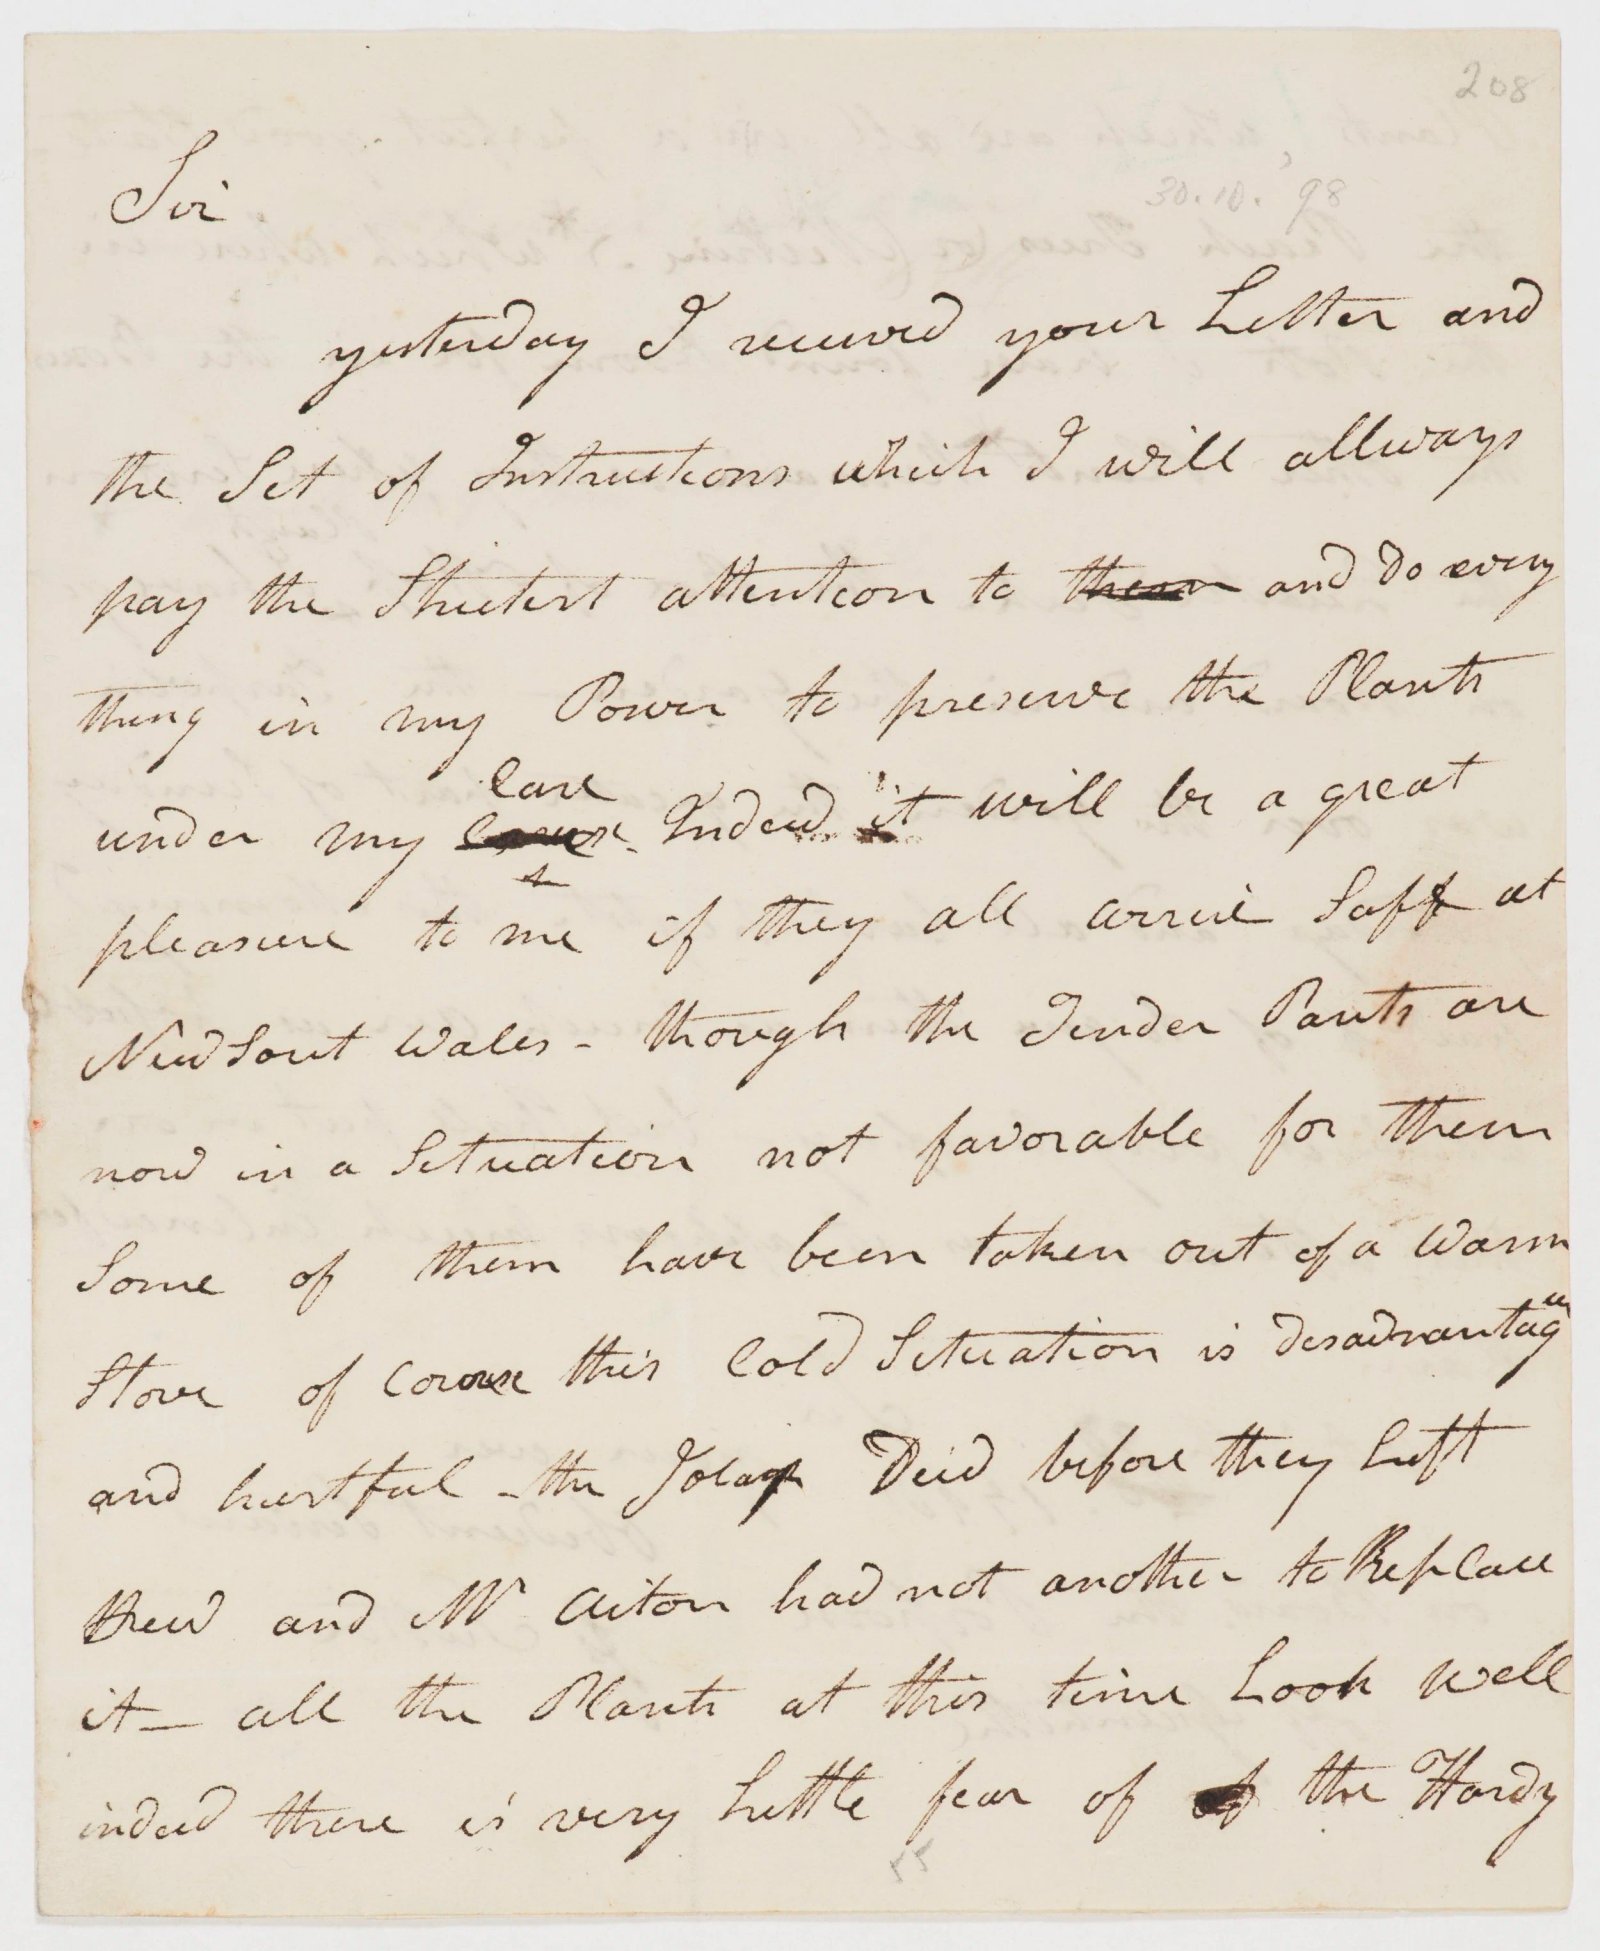 208
30.10.'98
Sir
yesterday I received your Letter and
the Set of Instructions which I will allways
pay the Strictest attention to them and do every
thing in my Power to preserve the Plants
Care
under my Indeed it will be a great
pleasure to me if they all arrive Saff at
New Sout Wales - though the Tender Pants are
now in a Situation not favorable for them
Some of them have been taken out of a Warm
Stove of Course this Cold Situation is desadvantag
and hurtful - the Jolap Deid before they Left
Kew and Mr Aiton had not another to Replace
it - all the Plants at this time Look Well
indeed there is very Little fear of the Hardy
55